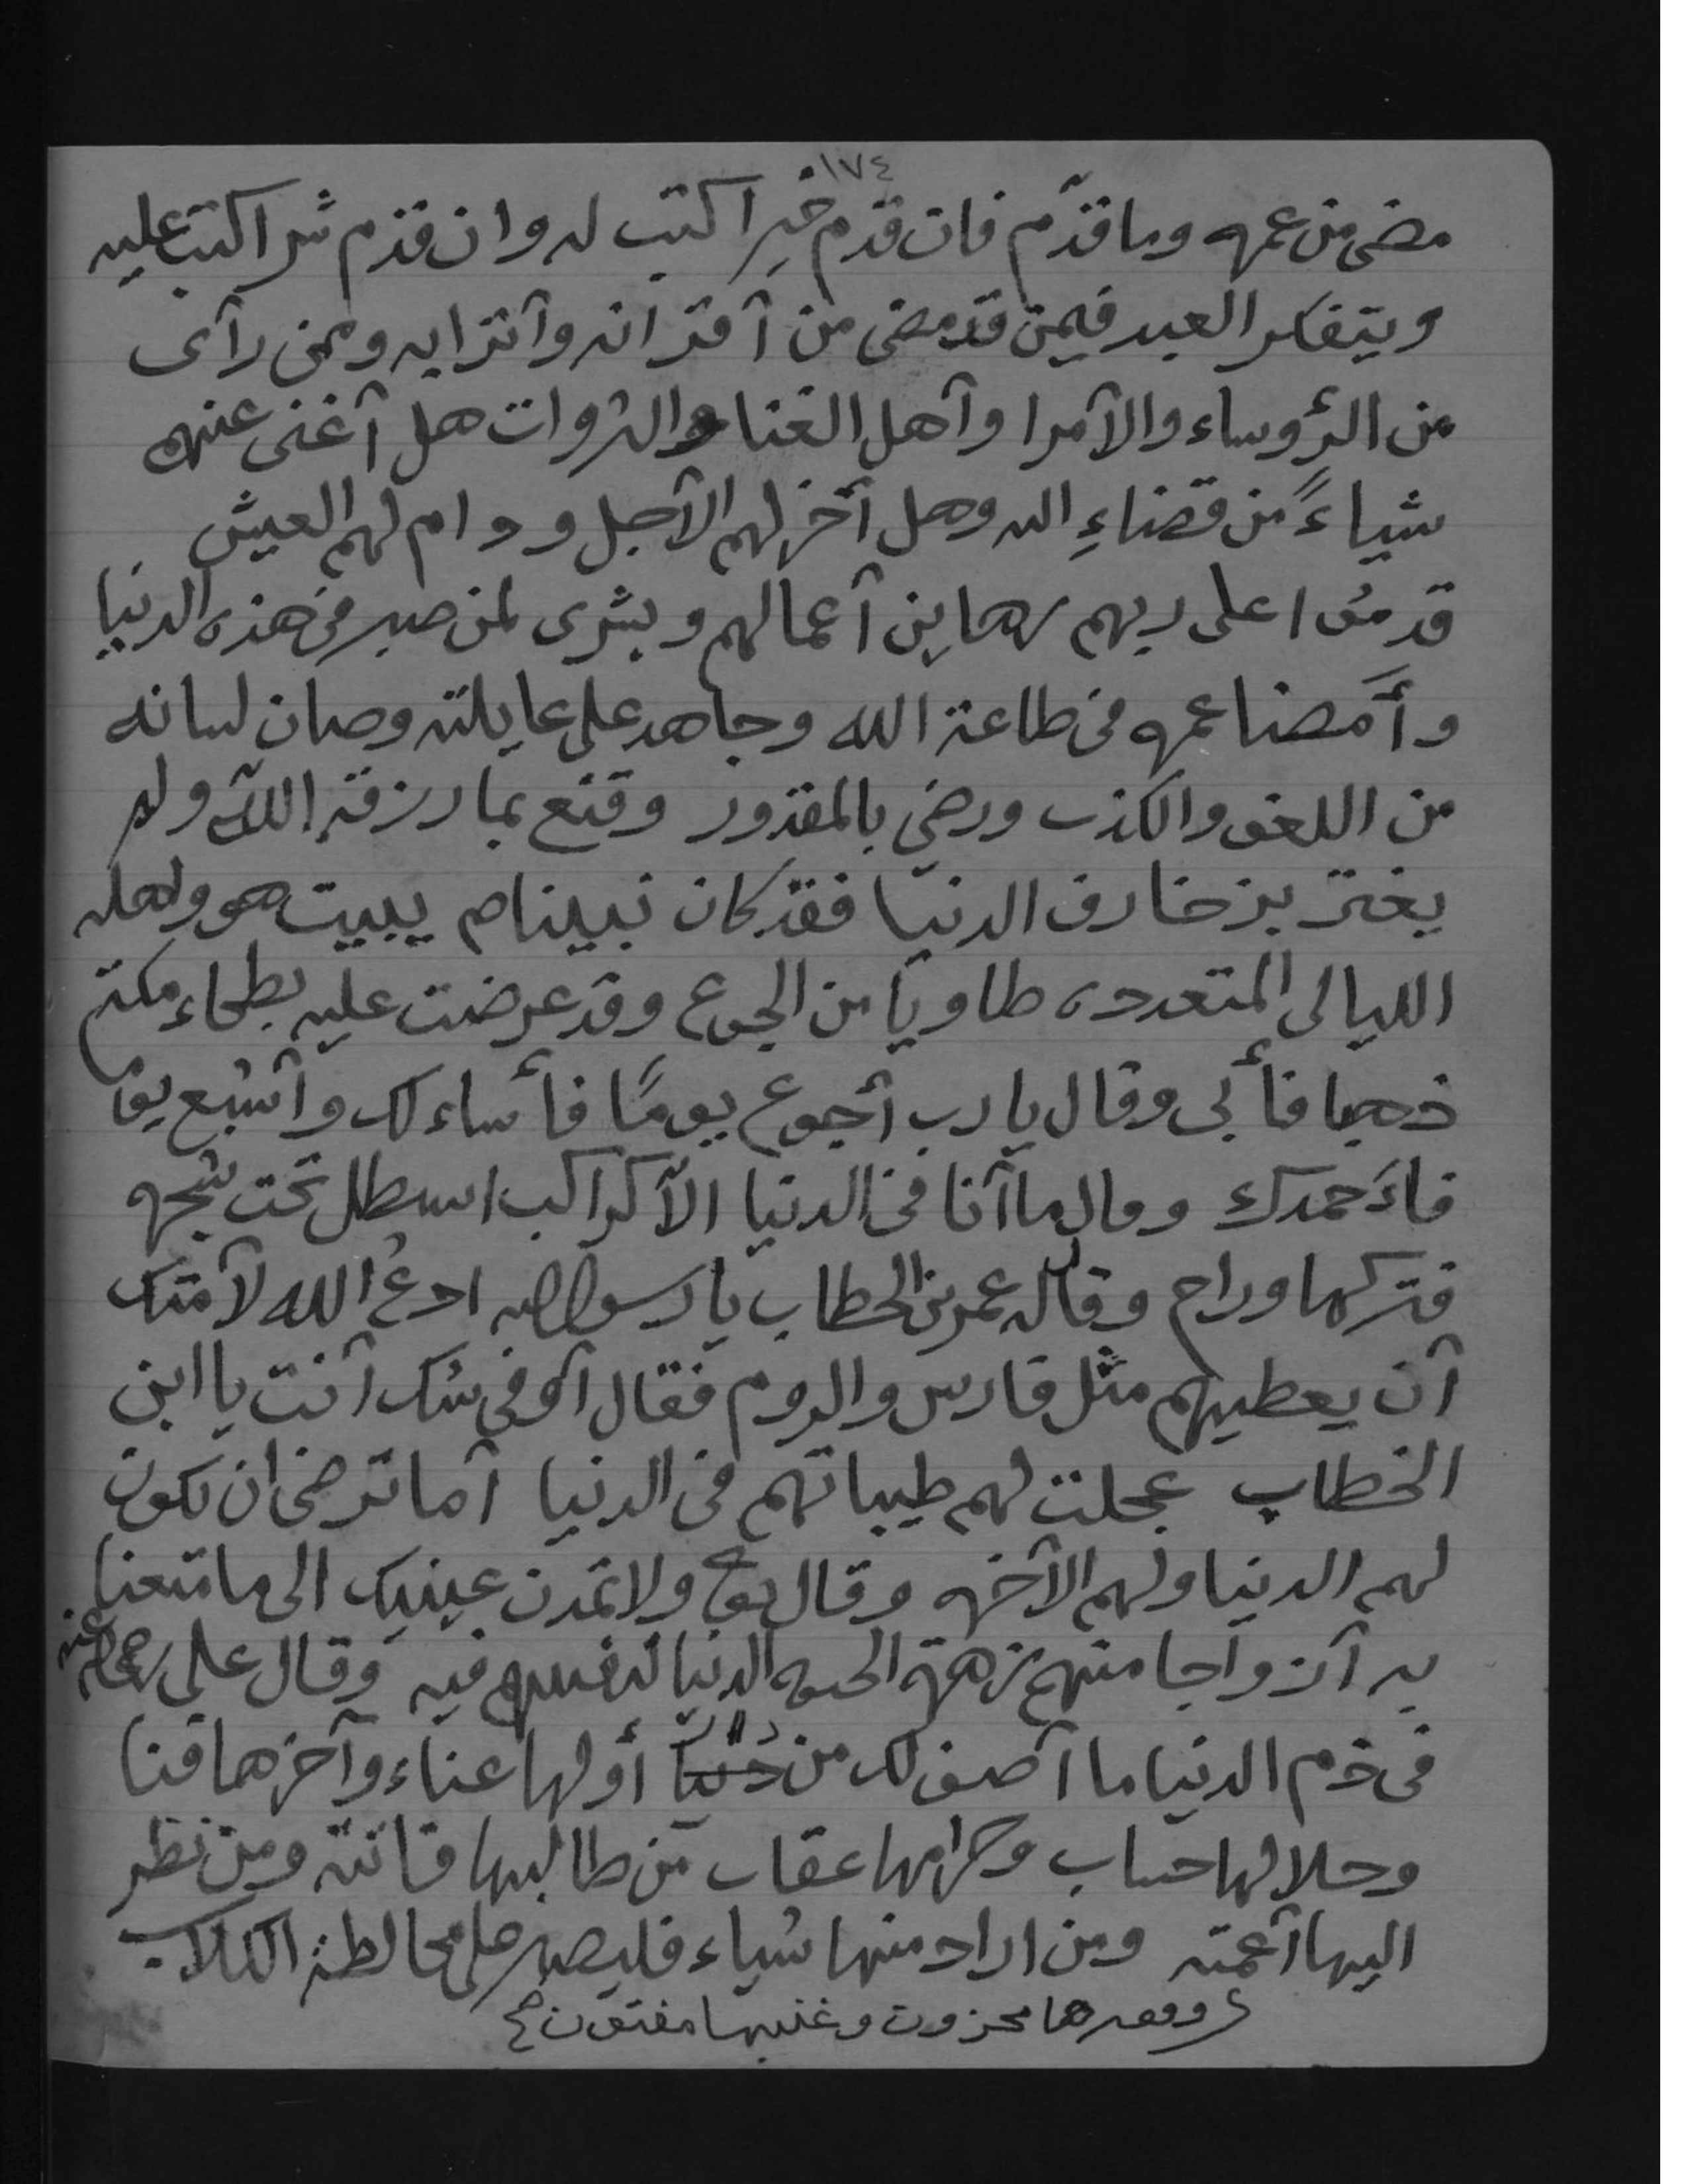 ١٧٤
مضى من عمره وما قدّم فان قدم خيرا كتب له وان قدم شرا كتب عليه
ويتفكر العبد فيمن قد مضى من آقرانه وآترابه وممن رآى
من الرؤساء والآمرا وآهل الغنا والثروات هل آغنى عنهم
شياءً من قضاءِ الله وهل آخر لهم الآجل ودام لهم العيش
قدموا على ربهم رهاين آعمالهم وبشرى لمن صبر في هذه الدنيا
وأمضا عمره في طاعة الله وجاهد على عايلته وصان لسانه
من اللغو والكذب ورضي بالمقدور وقنع بما رزقه الله ولم
يغتر بزخارف الدنيا فقد كان نبينا ص يبيت هو واهله
الليالى المتعدده طاويا من الجوع وقد عرضت عليه بطحاء مكة
ذهبا فأبى وقال يا رب آجوع يومًا فأساءلك وآشبع يوما
فاءَحمدك وقال ما آنا في الدنيا الآ كراكب استظل تحت شجره
فتركها وراح وقال له عمر بن الخطاب يا رسول الله ادعُ الله لآمتك
آن يعطيهم مثل فارس والروم فقال آوفي شك آنت يا ابن
الخطاب عجلت لهم طيباتهم في الدنيا آما ترضى ان تكون
لهم الدنيا ولهم الآخره وقال تعا ولا تمدن عينيك الى ما متعنا
به آزواجا منهم زهرة الحيوه الدنيا لنفتنهم فيه وقال علي رضي الله عنه
في ذم الدنيا ما آصف لك من دار أولها عناء وآخرها فنا
وحلالها حساب وحرامها عقاب من طالبها فاتته ومن نظر
اليها آعمته ومن اراد منها شياء فليصبر على مخالطة الكلاب
وفقيرها محزون وغنيها مفتون صح